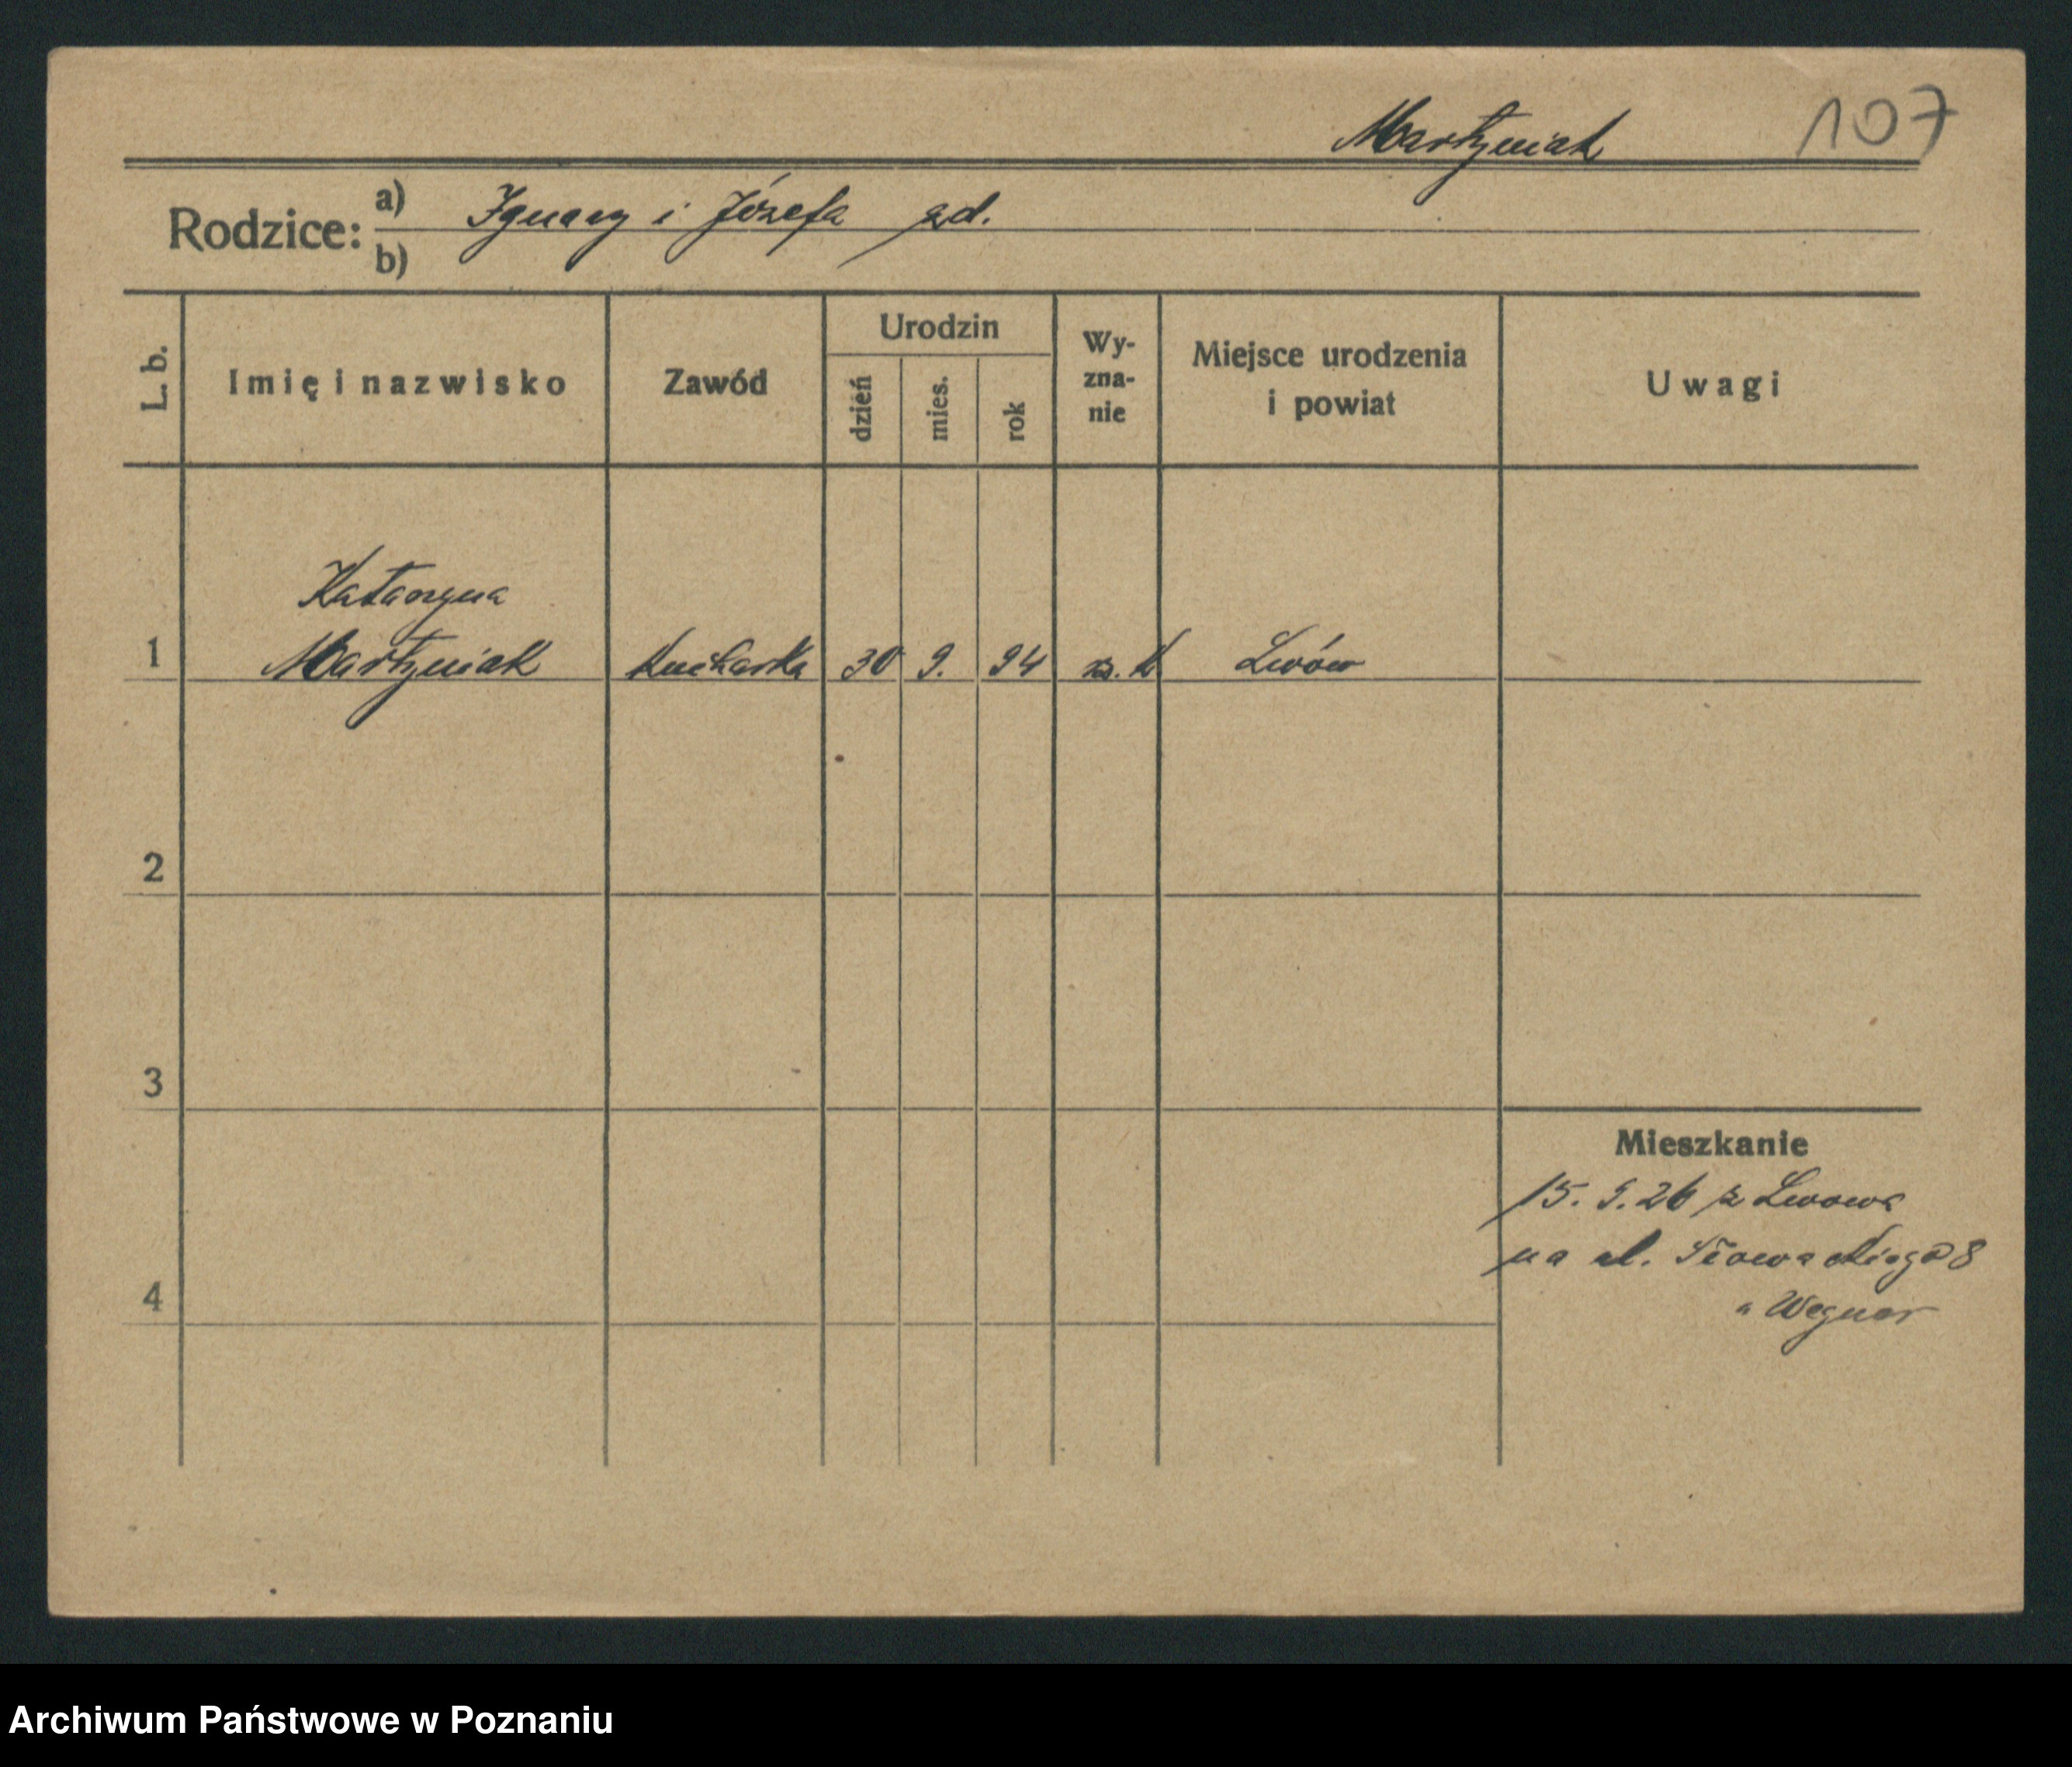 Martyniak 107
Rodzice: a) Ignacy i Józefa zd.
b)
L. b. Imię i nazwisko Zawód Urodzin dzień mies. rok Wy-zna-nie Miejsce urodzenia i powiat Uwagi
Katarzyna
1 Martyniak kucharka 30 9. 94 rz. k Lwów
2
3
Mieszkanie
15. 9. 26 z Lwowa
na ul. Słowackiego 8
4
Wegner
Archiwum Państwowe w Poznaniu